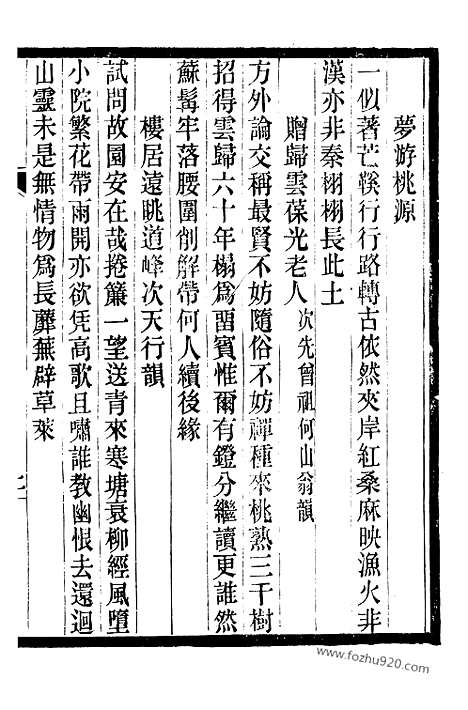 夢游桃源
一似著芒鞵行行路轉古依然夾岸紅桑麻映漁火非
漢亦非秦栩栩長此土
贈歸雲葆光老人次先曾祖何山翁韻
方外論交稱最賢不妨隨俗不妨禪種來桃熟三千樹
招得雲歸六十年榻爲畱賓惟爾有鐙分繼讀更誰然
蘇髯牢落腰圍削解帶何人續後緣
樓居遠眺道峰次天行韻
試問故園安在哉捲簾一望送青來寒塘衰柳經風墮
小院繁花帶雨開亦欲凭高歌且嘯誰教幽恨去還迴
山靈未是無情物爲長蘼蕪辟草萊
www.fozhu920.com